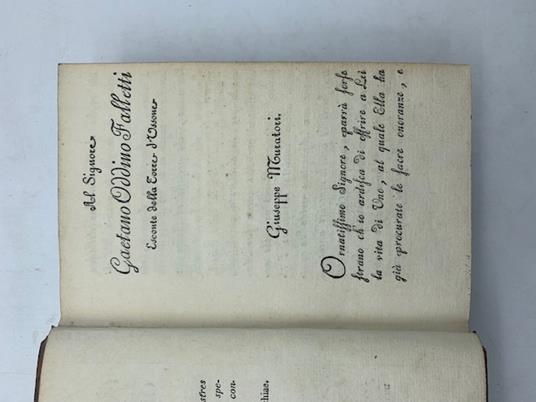 Al Signore
Gaetano Oddino Falletti
Esconte della Torre d'Ussone
Giuseppe Muratori.
Ornatissimo Signore, parrà forse
strano ch'io ardisca di offrire a Lei
la vita di Uno, al quale Ella ha
già procurate le sacre onoranze, e
stres
spe-
con-
chiae.